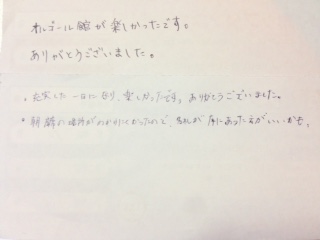 オルゴール館が楽しかったです。
ありがとうございました。
・充実した一日になり、楽しかったです。ありがとうございました。
・朝の場所がわかりにくかったので、名札が 前にあった方がいいかも。